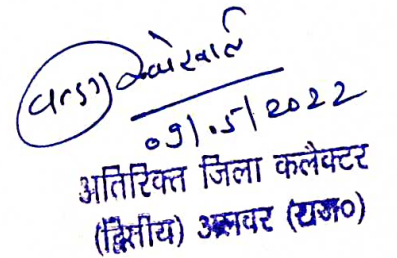 09/.5/2022
अतिरिक्त जिला कलैक्टर
(द्वितीय) अलवर (राज०)